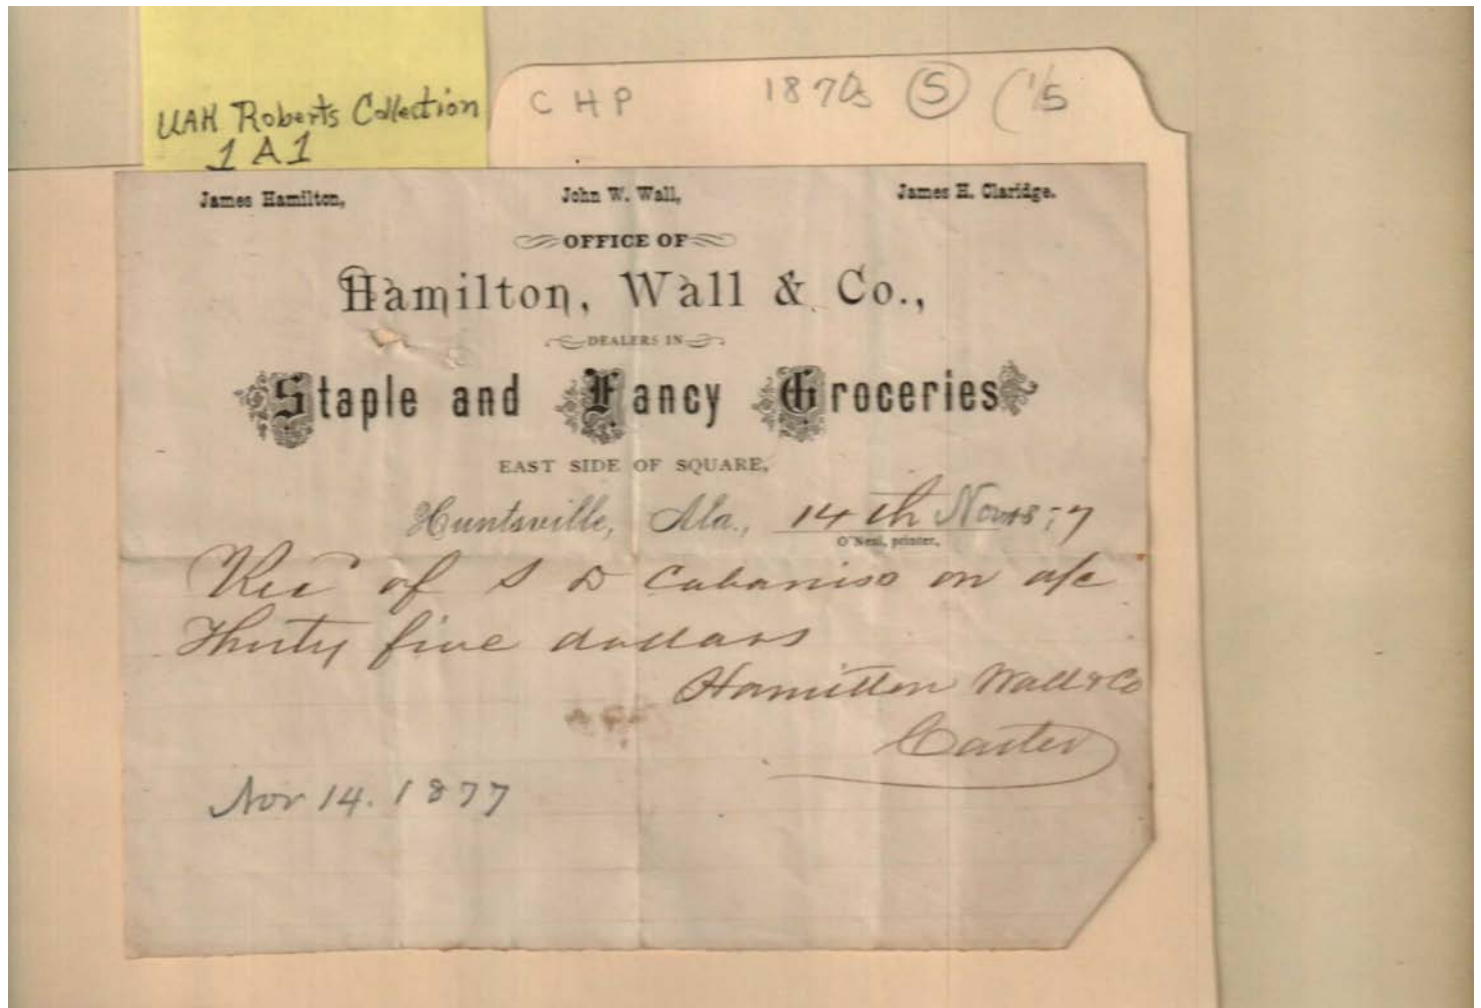 UAH Roberts Collection
1 A 1
C H P 1870s (5) ('15
James Hamilton, John W. Wall, James H. Claridge.
OFFICE OF
Hamilton, Wall & Co.,
DEALERS IN
Staple and Fancy Groceries
EAST SIDE OF SQUARE,
Huntsville, Ala., 14th Nov 1877
O'Neal, printer.
Rec of S D Cabaniss on a/c
Thirty five dollars
Hamilton Wall & Co
Carter
Nov 14. 1877